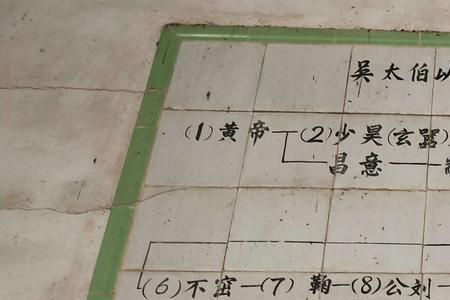 吳太伯以
(1)黃帝—(2)少昊(玄囂)
昌意—
(6)不窋—(7)鞠—(8)公刘—